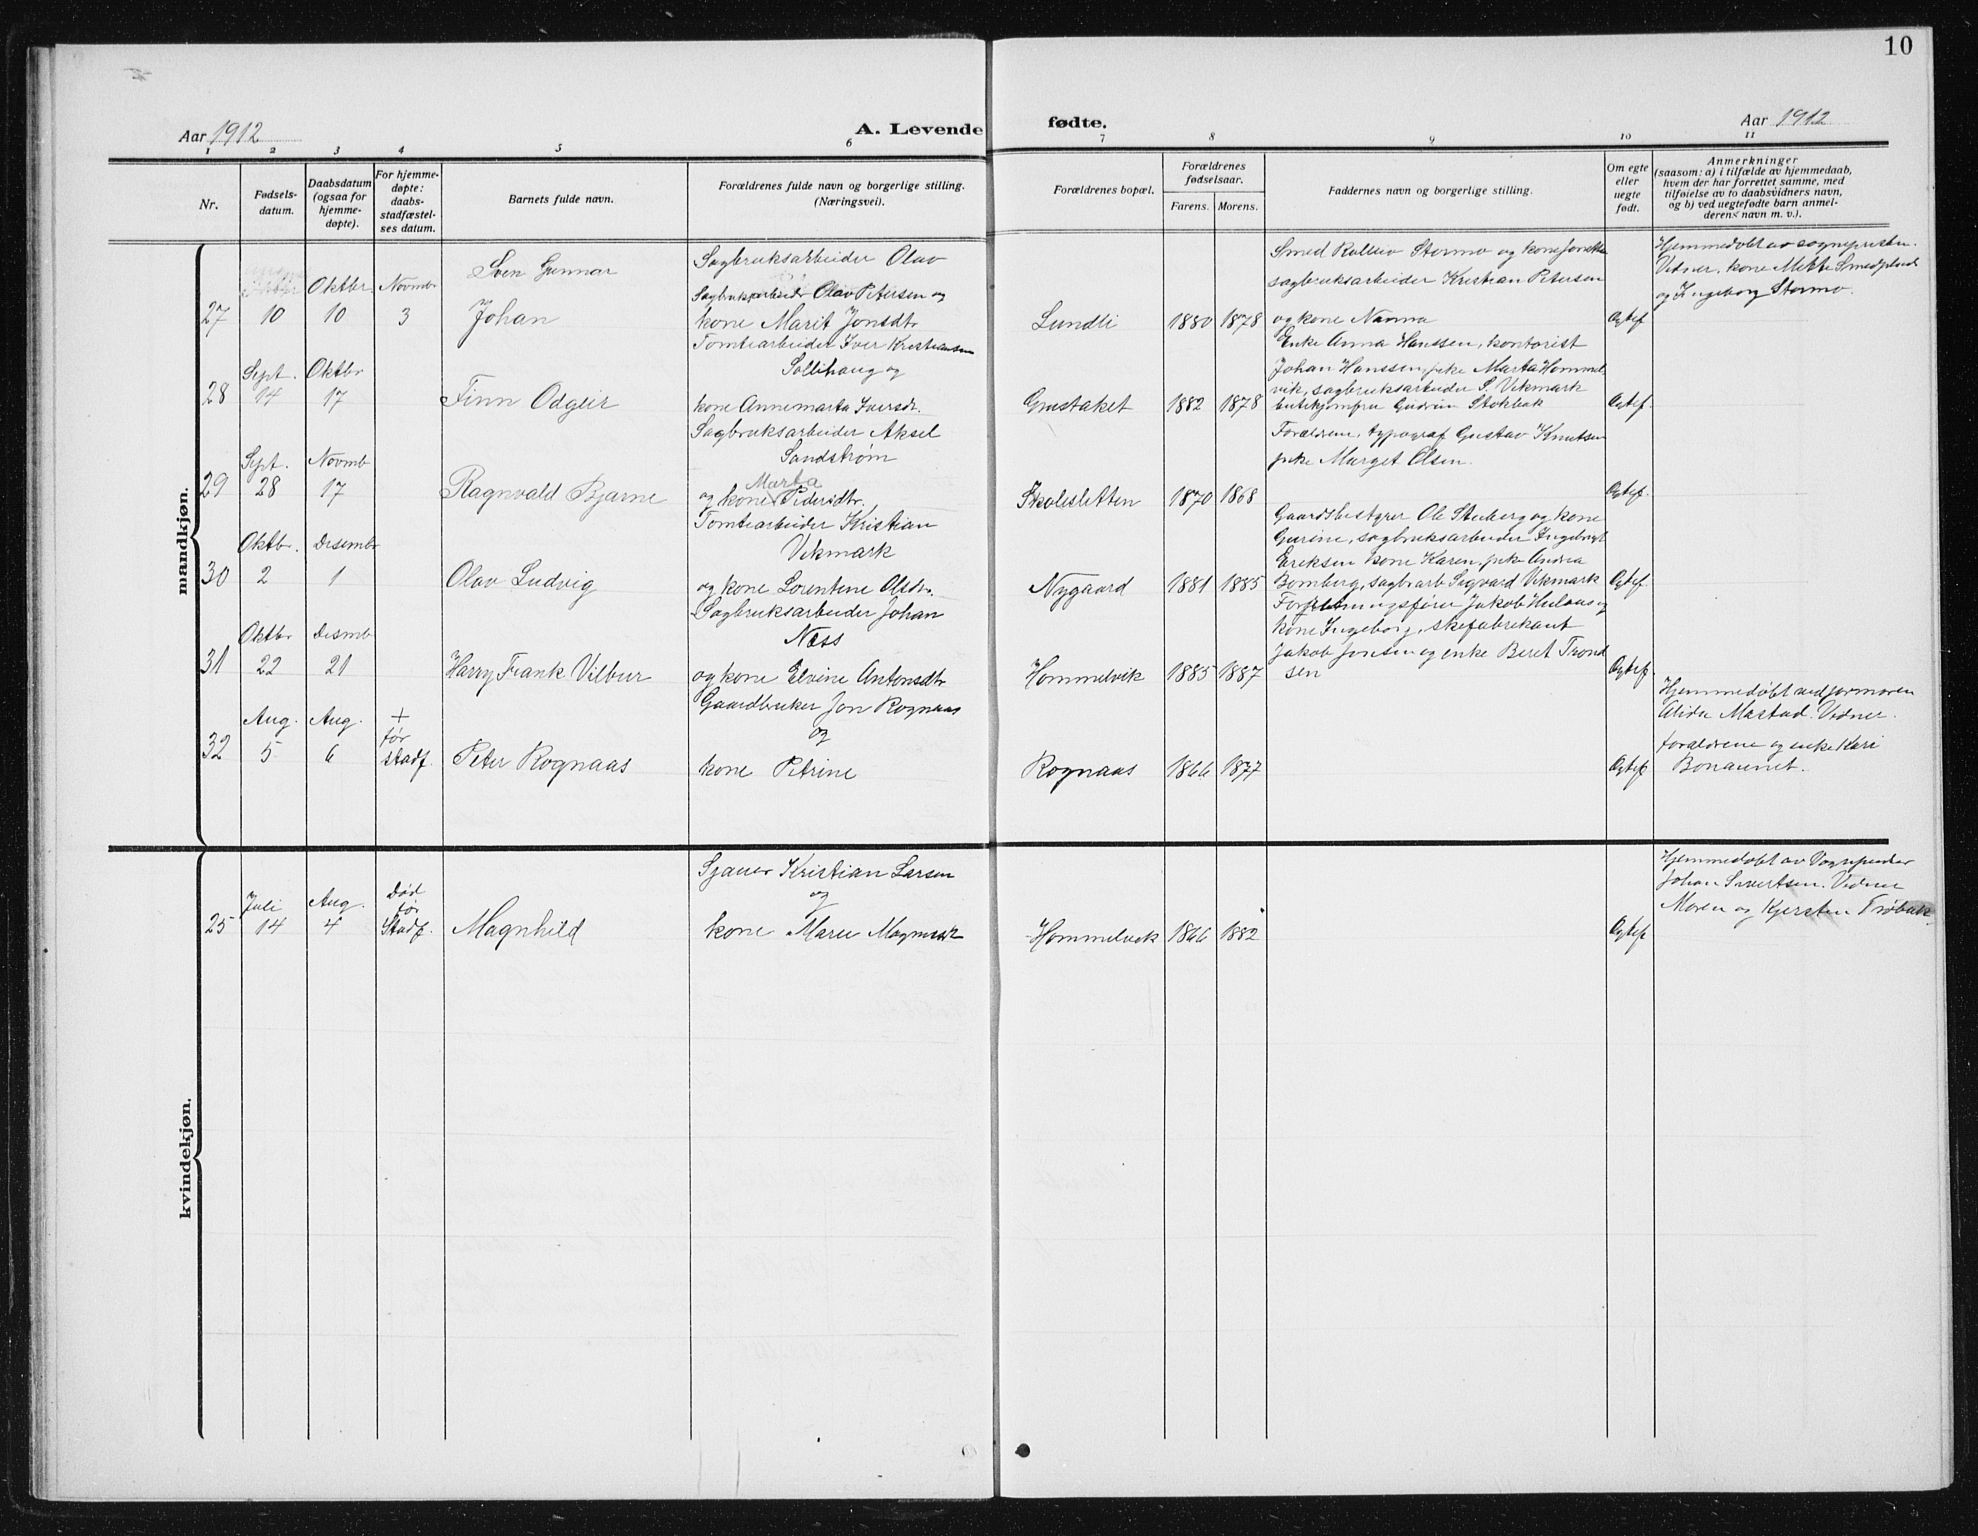 10
Aar 1912
A. Levende fødte.
Aar 1912
1 2 3 4 5 6 7 8 9 10 11
Nr.
Fødsels-
datum.
Daabsdatum
(ogsaa for
hjemme-
døpte).
For hjemme-
døpte:
daabs-
stadfæstel-
ses datum.
Barnets fulde navn.
Forældrenes fulde navn og borgerlige stilling.
(Næringsvei).
Forældrenes bopæl.
Forældrenes
fødselsaar.
Farens. Morens.
Faddernes navn og borgerlige stilling.
Om egte
eller
uegte
født.
Anmerkninger
(saasom: a) i tilfælde av hjemmedaab,
hvem der har forrettet samme, med
tilføielse av to daabsvidners navn,
og b) ved uegtefødte barn anmel-
derens navn m. v.).
mandkjøn.
27
10
Oktbr.
10
Novmbr
3
Sven Gunnar
Johan
Sagbruksarbeider Olav
Sagbruksarbeider Olav Petersen og
kone Marit Jonsdtr
Lundli
1880 1878
Smed Stormo og kone
sagbruksarbeider Kristian Petersen
og kone Nanna
Ægtef.
Hjemmedøbt av sognepresten.
Vidner, kone Mette
og Ingeborg Stormo.
28
Sept.
14
Oktbr
17
Finn Odgeir
Tomtearbeider Iver Kristiansen
Sollihaug og
kone Annemarta Iversdr.
Grustaket
1882 1878
Enke Anna Hanssen, kontorist
Johan Hanssen, pike Marta Hommel
vik, sagbruksarbeider S. Vikmark
butikjomfru Gudrun Stokbak
Ægtef.
29
Sept.
28
Novmb
17
Ragnvald Bjarne
Sagbruksarbeider Aksel
Sandstrom
Marta
og kone Pedersdtr.
Skolesletten
1870 1868
Forældrene, typograf Gustav Knutsen
pike Marget Olsen.
Ægtef.
30
Oktbr.
2
Desembr
1
Olav Ludvig
Tomtearbeider Kristian
Vikmark
og kone Lorentene Olsdr.
Nygaard
1881 1885
Gaardsbestyrer Ole Stuberg og kone
Gurine, sagbruksarbeider Ingebrigt
Eriksen kone Karen, pike Andrea
Bomberg, sagbr.arb Sigvard Vikmark
Ægtef.
31
Oktbr
22
Desmb
21
Harry Frank Vilbur
Sagbruksarbeider Johan
Næss
og kone Elvine Antonsdtr
Hommelvik
1885 1887
Jakob og
kone Ingeborg, skefabrekant
Jakob Jonsen og enke Beret Trond
sen
Ægtef.
32
Aug.
5
Aug.
6
+
før
stadf.
Peter Rognaas
Gaardbruker Jon Rognaas
og
kone Petrine
Rognaas
1866 1877
Ægtef.
Hjemmedøbt ved jormoren
Alida Mastad. Vidner.
forældrene og enke Kari
Bonaunet.
kvindekjøn.
25
Juli
14
Aug.
4
Død
før
Stadf.
Magnhild
Sjauer Kristian Larsen
og
kone Marie
Hommelvik
1866 1882
Ægtef.
Hjemmedøbt av
Johan Sivertsen. Vidner
Moren og Kjersten Trøbak